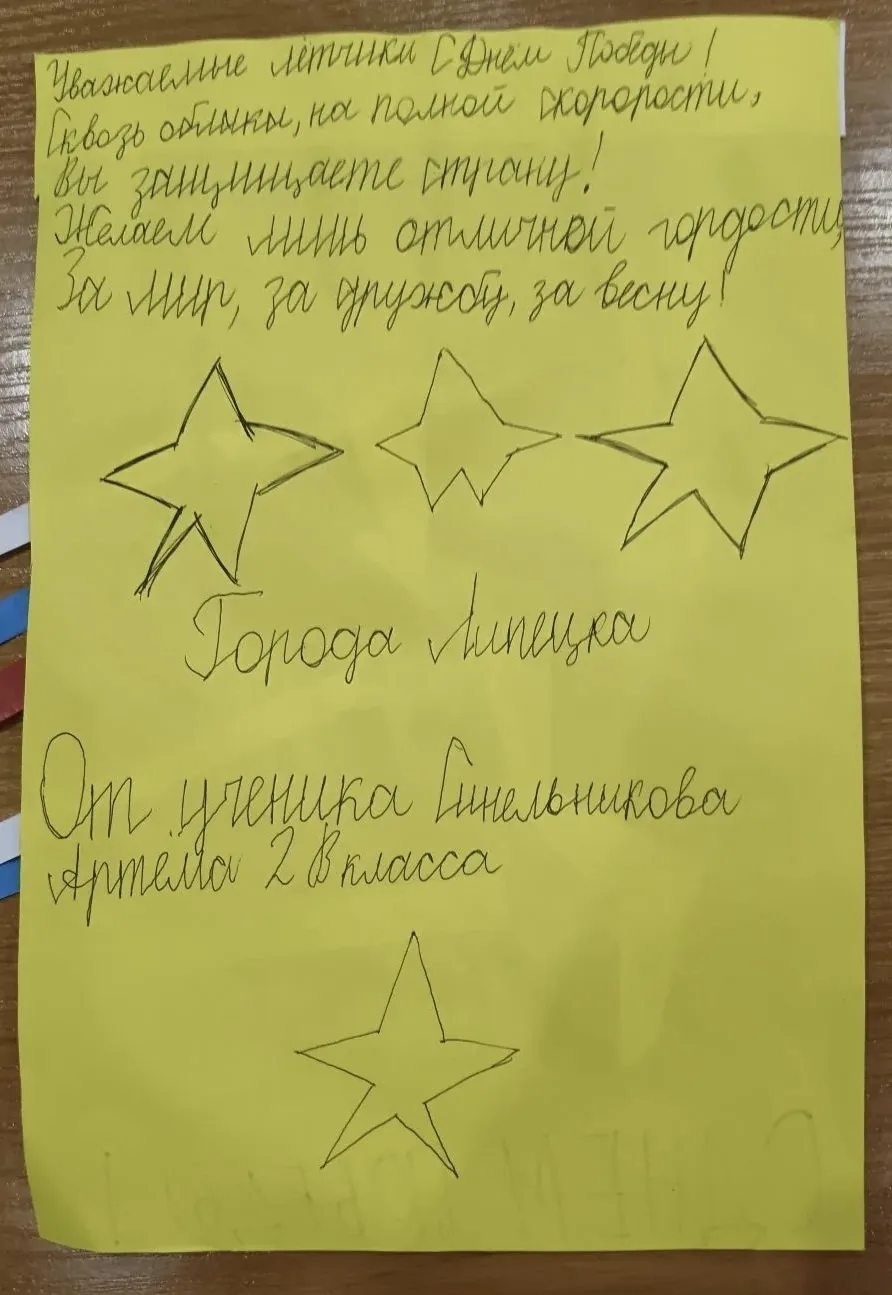 Уважаемые лётчики С Днём Победы!
Сквозь облыкы, на полной скорорости,
Вы защищаете страну!
Желаем лишь отличной гордости,
За мир, за дружбу, за весну!
Города Липецка
От ученика Синельникова
Артёма 2 В класса